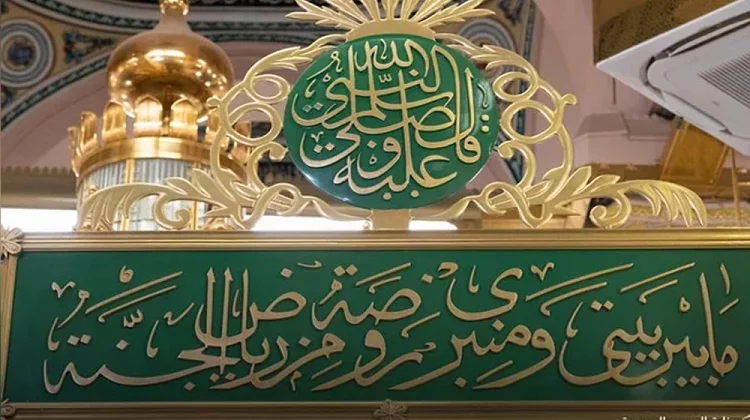 قال النبي صلى الله عليه وسلم
ما بين بيتي ومنبري روضة من رياض الجنة